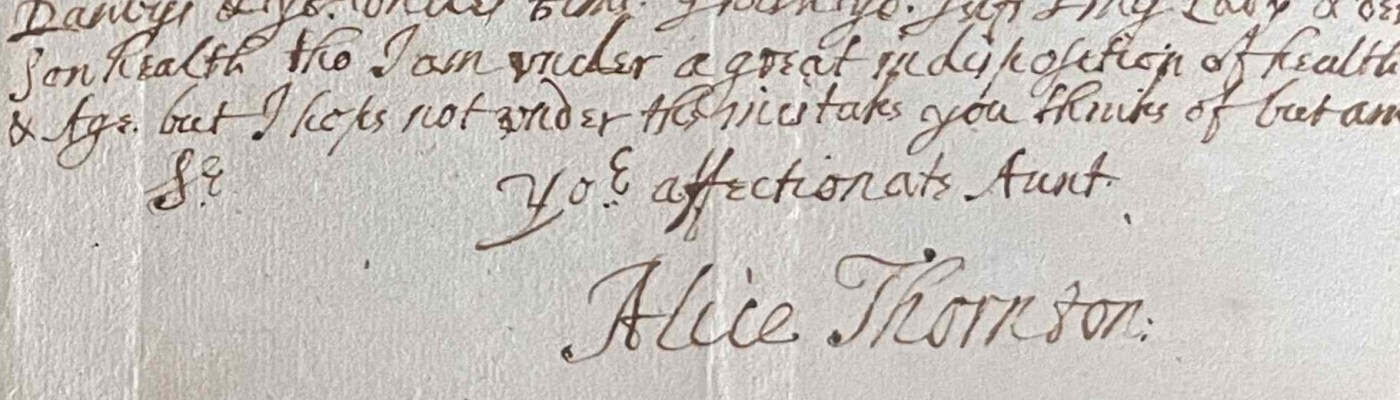 my Lady &
son health tho I am vnder a great indisposition of health
& Age. but I hope not vnder the mistake you thinks of but am
Sr. Yor. affectionate Aunt.
Alice Thornton.